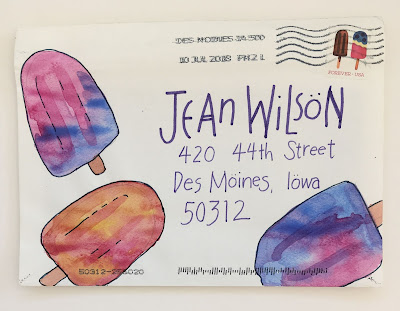 DES MOINES IA 500
10 JUL 2018 PM 2 L
FOREVER • USA
JEAN WILSÖN
420 44th Street
Des Möines, Iöwa
50312
50312-256020